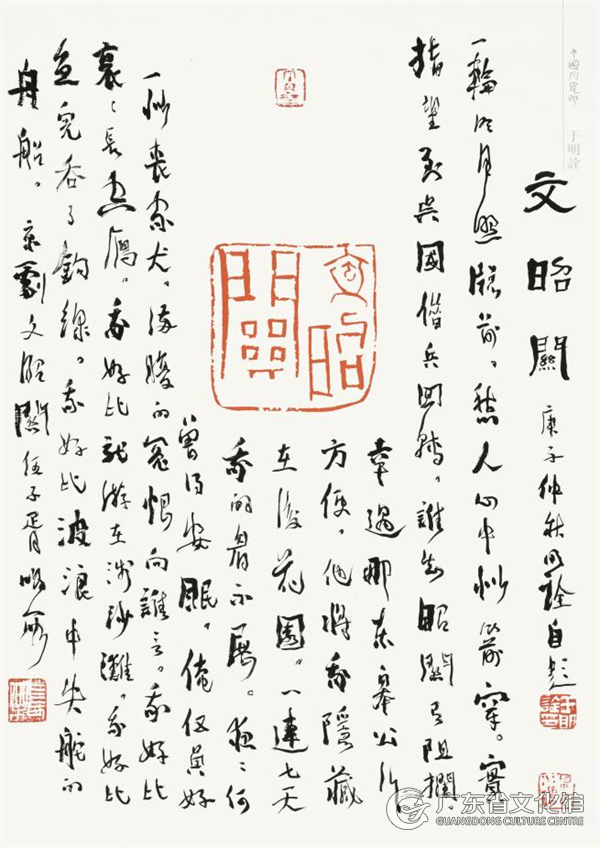 于明詮
文昭關
庚子仲秋明詮自題
一輪明月照牕前。愁人心中似箭穿。實
指望到吳國借兵回轉。誰知昭關有阻攔。
幸遇那東皋公行
方便。他將我隱藏
在後花園。一連七天
我的眉不展。夜〻何
曾得安眠。俺伍員好
一似喪家犬。滿腹的冤恨向誰言。我好比
哀〻長空雁。我好比龍游在淺沙灘。我好比
魚兒吞了鉤線。我好比波浪中失舵的
舟船。京劇文昭關伍子胥唱段
文昭關
广东省文化馆
GUANGDONG CULTURE CENTRE